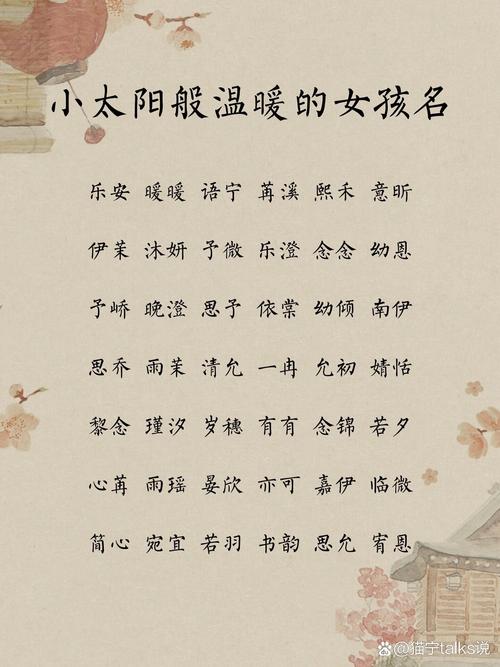 小太阳般温暖的女孩名
乐安 暖暖 语宁 苒溪 熙禾 意昕
伊茉 沐妍 予微 乐澄 念念 幼恩
予峤 晚澄 思予 依棠 幼倾 南伊
思乔 雨茉 清允 一冉 允初 婧恬
黎念 瑾汐 岁穗 有有 念锦 若夕
心苒 雨瑶 晏欣 亦可 嘉伊 临微
简心 宛宜 若羽 书韵 思允 宥恩
猫宁talks说